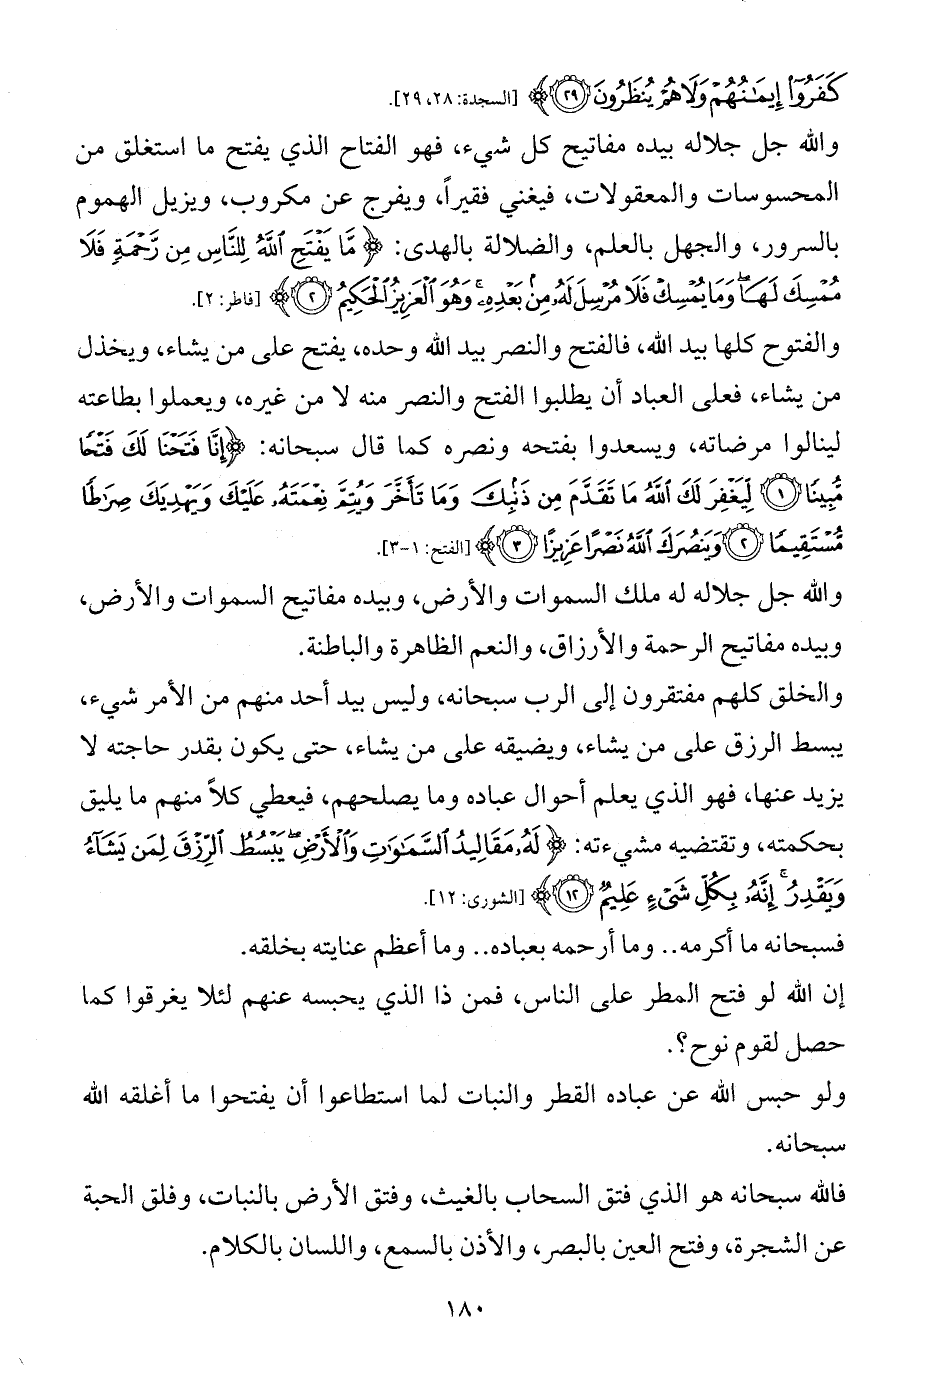 كَفَرُوٓا۟ إِيمَـٰنُهُمْ وَلَا هُمْ يُنظَرُونَ ﴿٢٩﴾ [السجدة: ٢٨، ٢٩].
والله جل جلاله بيده مفاتيح كل شيء، فهو الفتاح الذي يفتح ما استغلق من
المحسوسات والمعقولات، فيغني فقيراً، ويفرج عن مكروب، ويزيل الهموم
بالسرور، والجهل بالعلم، والضلالة بالهدى: ﴿ مَّا يَفْتَحِ ٱللَّهُ لِلنَّاسِ مِن رَّحْمَةٍ فَلَا
مُمْسِكَ لَهَا ۖ وَمَا يُمْسِكْ فَلَا مُرْسِلَ لَهُۥ مِنۢ بَعْدِهِۦ ۚ وَهُوَ ٱلْعَزِيزُ ٱلْحَكِيمُ ﴿٢﴾ [فاطر: ٢].
والفتوح كلها بيد الله، فالفتح والنصر بيد الله وحده، يفتح على من يشاء، ويخذل
من يشاء، فعلى العباد أن يطلبوا الفتح والنصر منه لا من غيره، ويعملوا بطاعته
لينالوا مرضاته، ويسعدوا بفتحه ونصره كما قال سبحانه: ﴿ إِنَّا فَتَحْنَا لَكَ فَتْحًا
مُّبِينًا ﴿١﴾ لِّيَغْفِرَ لَكَ ٱللَّهُ مَا تَقَدَّمَ مِن ذَنۢبِكَ وَمَا تَأَخَّرَ وَيُتِمَّ نِعْمَتَهُۥ عَلَيْكَ وَيَهْدِيَكَ صِرَٰطًا
مُّسْتَقِيمًا ﴿٢﴾ وَيَنصُرَكَ ٱللَّهُ نَصْرًا عَزِيزًا ﴿٣﴾ [الفتح: ١-٣].
والله جل جلاله له ملك السموات والأرض، وبيده مفاتيح السموات والأرض،
وبيده مفاتيح الرحمة والأرزاق، والنعم الظاهرة والباطنة.
والخلق كلهم مفتقرون إلى الرب سبحانه، وليس بيد أحد منهم من الأمر شيء،
يبسط الرزق على من يشاء، ويضيقه على من يشاء، حتى يكون بقدر حاجته لا
يزيد عنها، فهو الذي يعلم أحوال عباده وما يصلحهم، فيعطي كلاً منهم ما يليق
بحكمته، وتقتضيه مشيءته: ﴿ لَهُۥ مَقَالِيدُ ٱلسَّمَـٰوَٰتِ وَٱلْأَرْضِ ۖ يَبْسُطُ ٱلرِّزْقَ لِمَن يَشَآءُ
وَيَقْدِرُ ۚ إِنَّهُۥ بِكُلِّ شَىْءٍ عَلِيمٌ ﴿١٢﴾ [الشورى: ١٢].
فسبحانه ما أكرمه.. وما أرحمه بعباده.. وما أعظم عنايته بخلقه.
إن الله لو فتح المطر على الناس، فمن ذا الذي يحبسه عنهم لئلا يغرقوا كما
حصل لقوم نوح؟.
ولو حبس الله عن عباده القطر والنبات لما استطاعوا أن يفتحوا ما أغلقه الله
سبحانه.
فالله سبحانه هو الذي فتق السحاب بالغيث، وفتق الأرض بالنبات، وفلق الحبة
عن الشجرة، وفتح العين بالبصر، والأذن بالسمع، واللسان بالكلام.
١٨٠